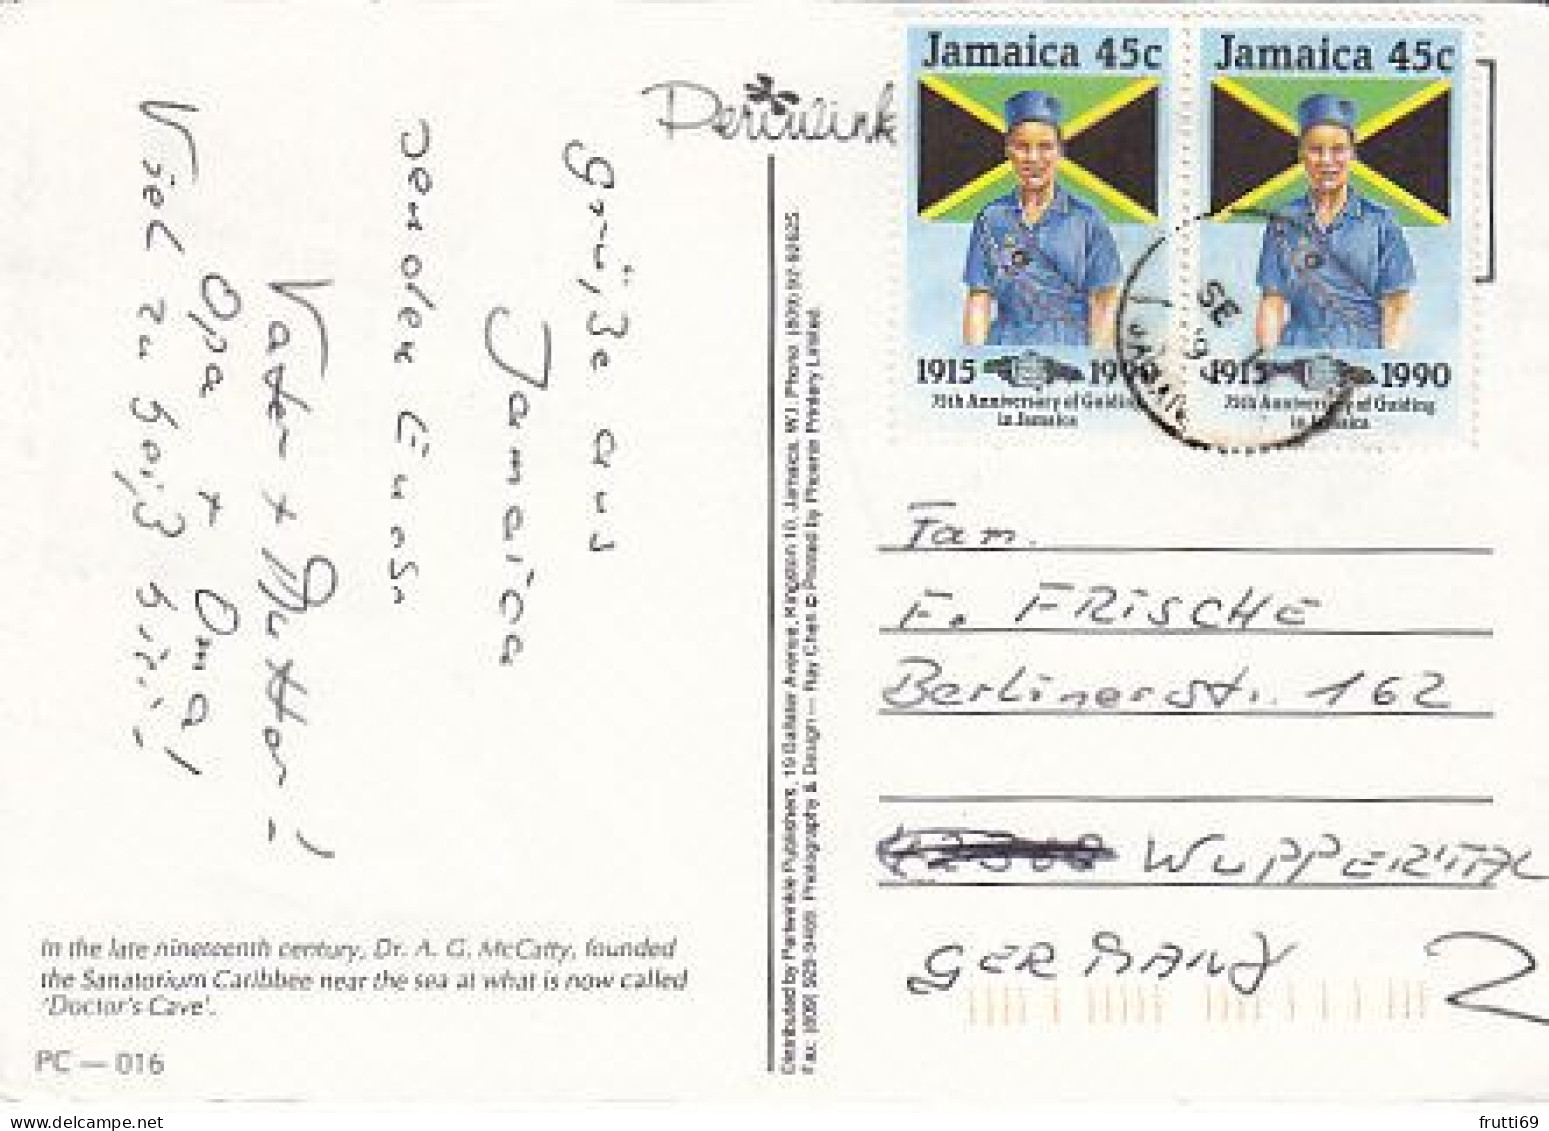 Grüße aus
Jamaica
senden Euch
Vater + Mutter!
Opa + Oma!
Viel zu heiß hier!
Periwinkle
Jamaica 45c
1915 1990
75th Anniversary of Guiding
in Jamaica
Jamaica 45c
1915 1990
75th Anniversary of Guiding
in Jamaica
SE
JAMAICA
Fam.
F. FRISCHE
Berlinerstr. 162
WUPPERTAL
GERMANY
2
Distributed by Periwinkle Publishers, 19 Gallator Avenue, Kingston 10, Jamaica, W.I. Phone: (809) 92-62625.
Fax: (809) 929-3469. Photography & Design — Ray Chen © Printed by Phoenix Printery Limited.
In the late nineteenth century, Dr. A. G. McCatty, founded
the Sanatorium Caribbee near the sea at what is now called
'Doctor's Cave'.
PC — 016
frutti69